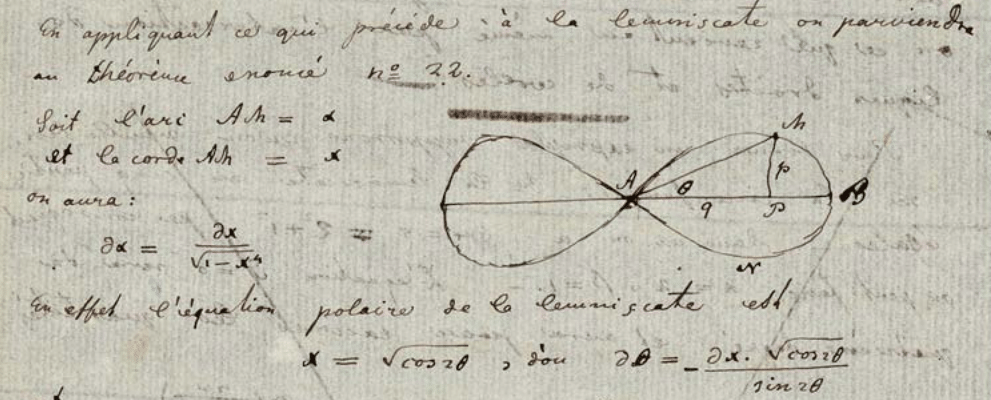 En appliquant ce qui précède à la lemniscate on parviendra
au théorème enoncé nº 22.
Soit l'arc AM = α
et la corde AM = x
on aura:
∂α = ∂x / √(1 − x⁴)
A θ q P p M B N
En effet l'équation polaire de la lemniscate est
x = √cos 2θ , d'où ∂θ = − ∂x. √cos 2θ / sin 2θ